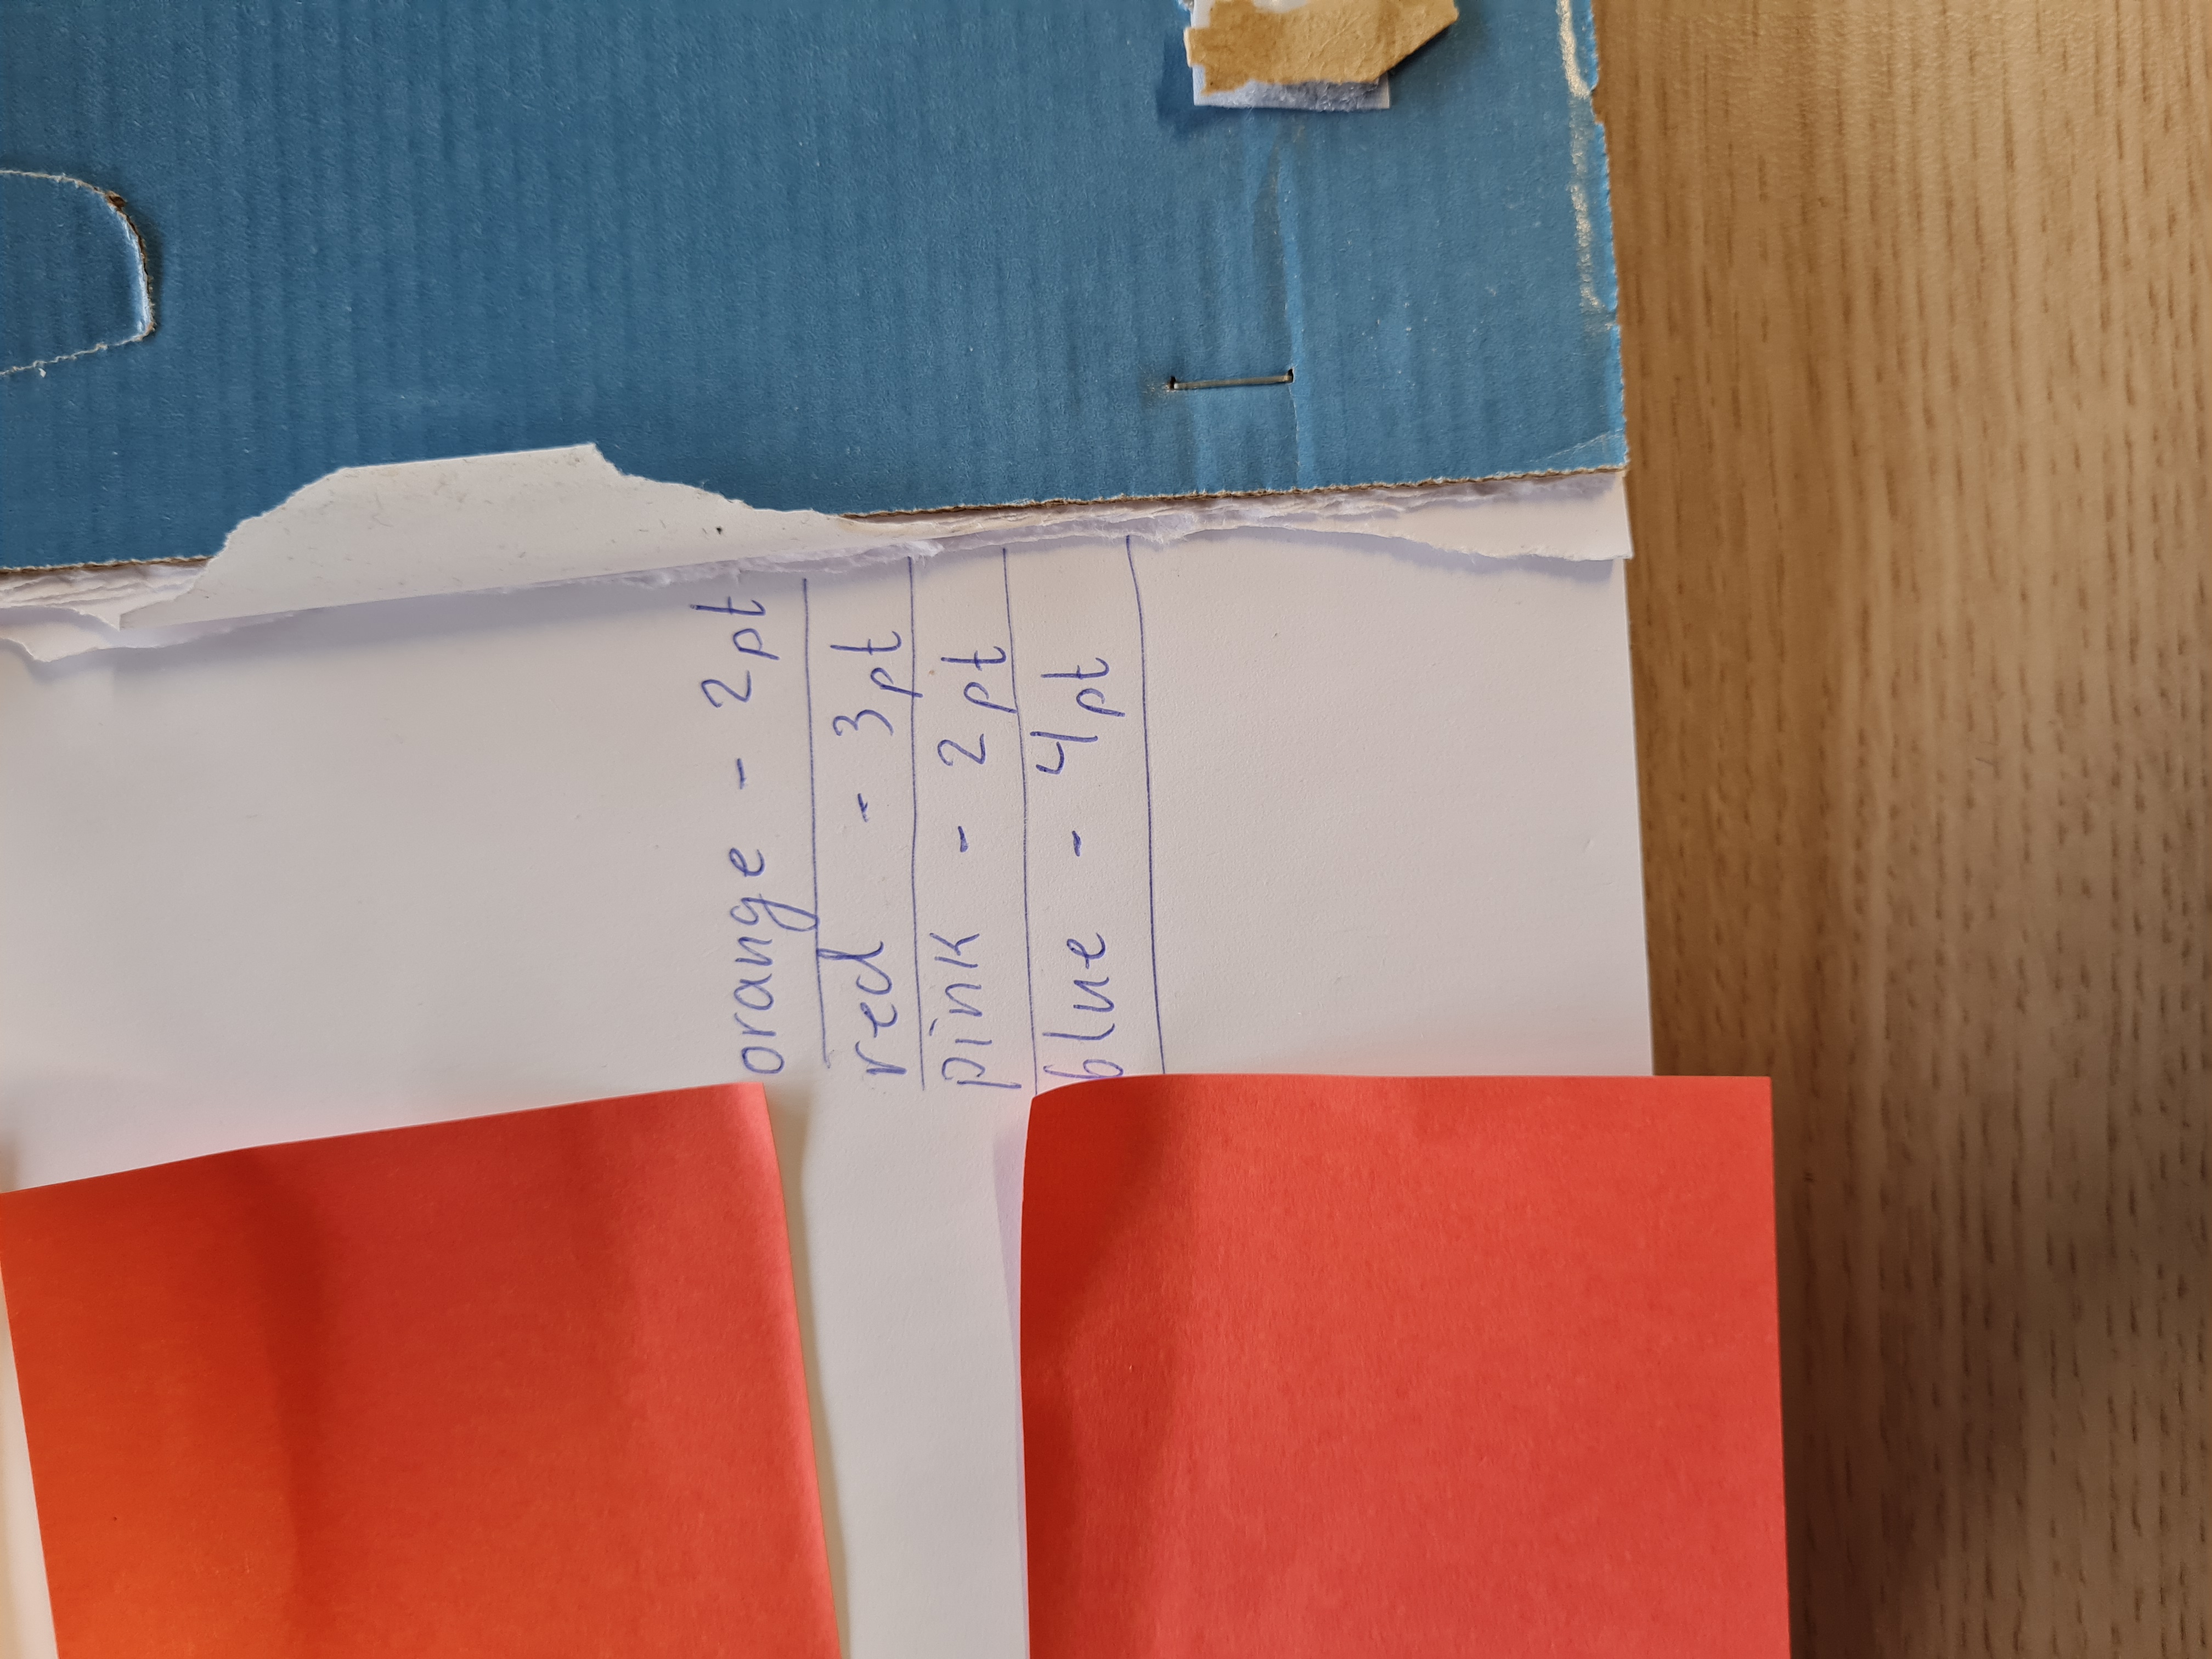 orange - 2pt
red - 3pt
pink - 2pt
blue - 4pt